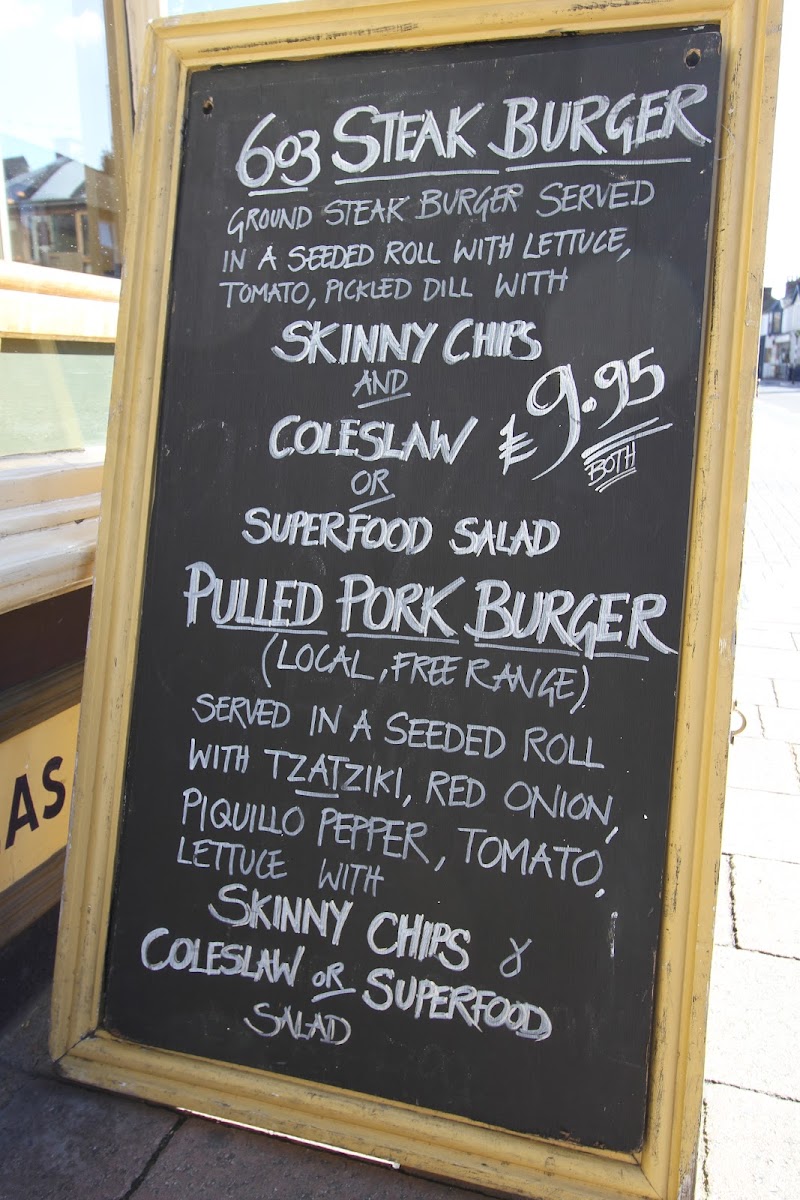 603 STEAK BURGER
GROUND STEAK BURGER SERVED
IN A SEEDED ROLL WITH LETTUCE,
TOMATO, PICKLED DILL WITH
SKINNY CHIPS
AND
COLESLAW £9.95
BOTH
OR
SUPERFOOD SALAD
PULLED PORK BURGER
(LOCAL, FREE RANGE)
SERVED IN A SEEDED ROLL
WITH TZATZIKI, RED ONION,
PIQUILLO PEPPER, TOMATO,
LETTUCE WITH
SKINNY CHIPS &
COLESLAW OR SUPERFOOD
SALAD
AS